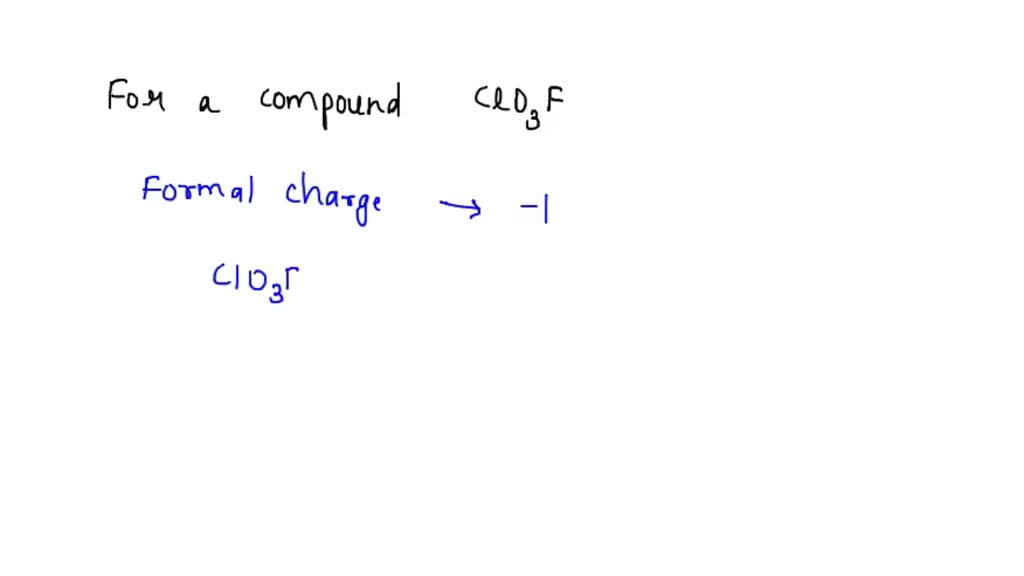 For a compound ClO₃F
Formal charge → -1
ClO₃Γ